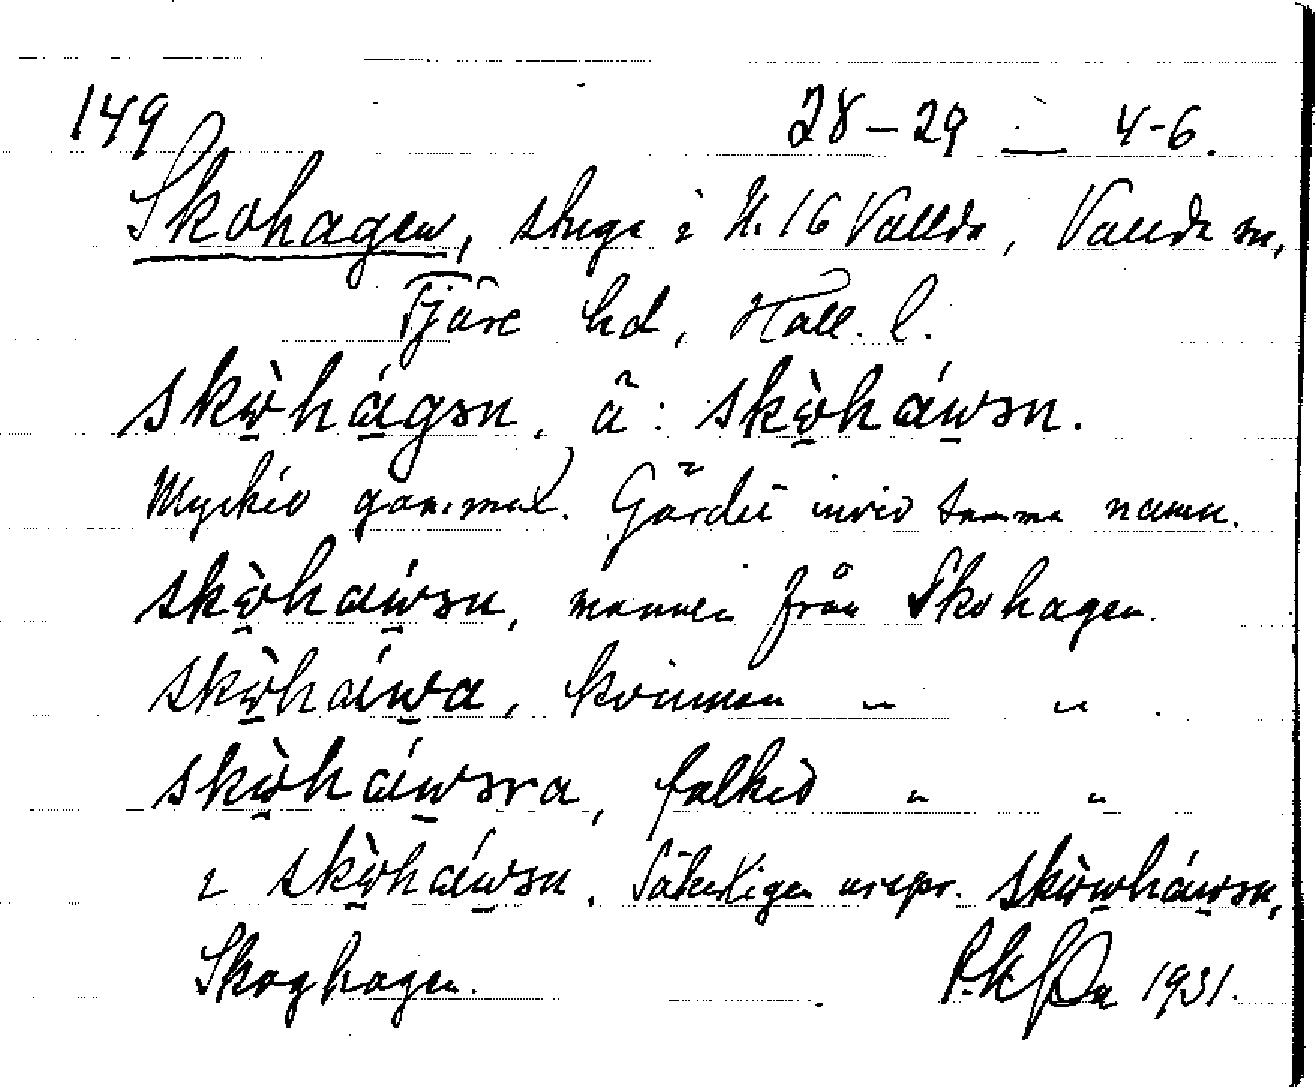 149 28-29 — 4-6.
Skohagen, stuga i N. 16 Vallda, Vallda sn,
Fjäre hd, Hall. l.
skὼ̱há̱gən. ä: skὼ̱háw̱ən.
Mycket gammal. Gärdet invid samma namn.
skὼ̱háw̱ən, mannen från Skohagen.
skὼ̱háw̱a, kvinnan " " .
skὼ̱háw̱əra, folket " "
i skὼ̱háw̱ən. Säkerligen urspr. skὼw̱háw̱ən,
Skoghagen. 1931.